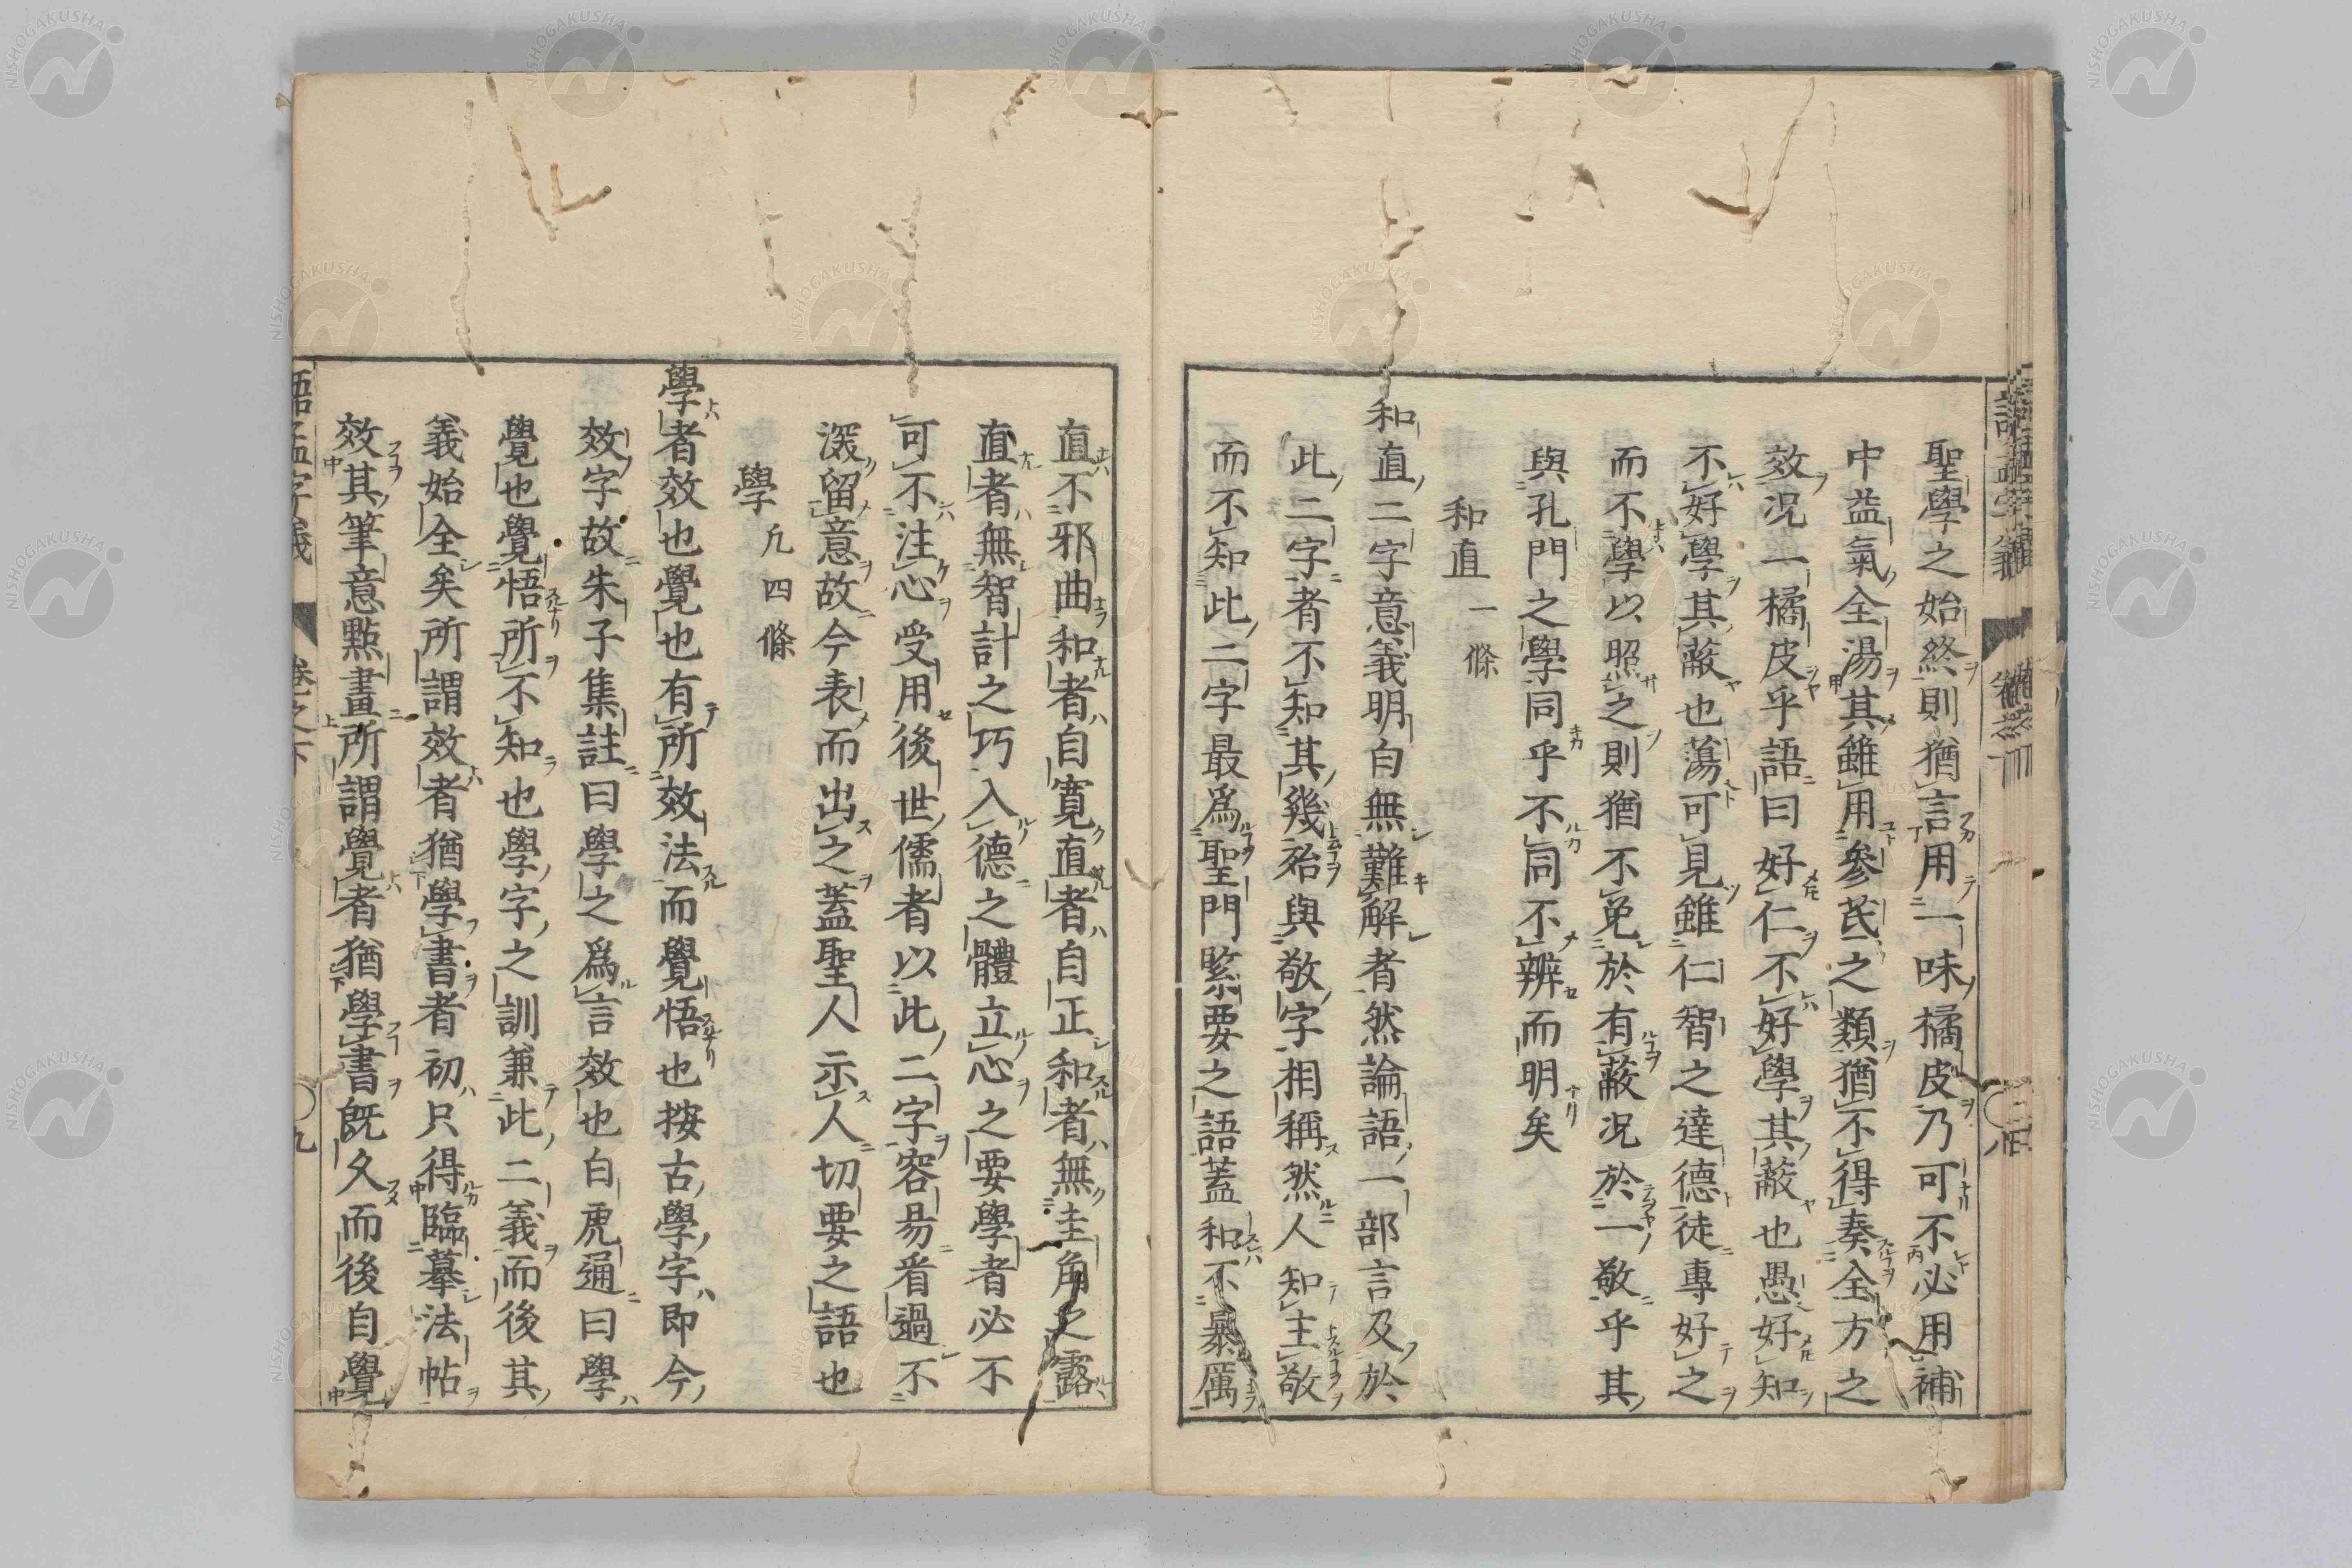 聖學之始終則猶言用一味橘皮乃可不必用補
中益氣全湯其雖用參芪之類猶不得奏全方之
效况一橘皮乎語曰好仁不好學其蔽也愚好知
不好學其蔽也蕩可見雖仁智之達德徒專好之
而不學以照之則猶不免於有蔽况於一敬乎其
與孔門之學同乎不同不辨而明矣
和直 一條
和直二字意義明白無難解者然論語一部言及於
此二字者不知其幾殆與敬字相稱然人知主敬
而不知此二字最爲聖門緊要之語蓋和不暴厲
直不邪曲和者自寬直者自正和者無圭角之露
直者無智計之巧入德之體立心之要學者必不
可不注心受用後世儒者以此二字容易看過不
深留意故今表而出之蓋聖人示人切要之語也
學 凡四條
學者效也覺也有所效法而覺悟也按古學字即今
效字故朱子集註曰學之爲言效也白虎通曰學
覺也覺悟所不知也學字之訓兼此二義而後其
義始全矣所謂效者猶學書者初只得臨摹法帖
效其筆意點畫所謂覺者猶學書既久而後自覺
語孟字義 卷之下 九